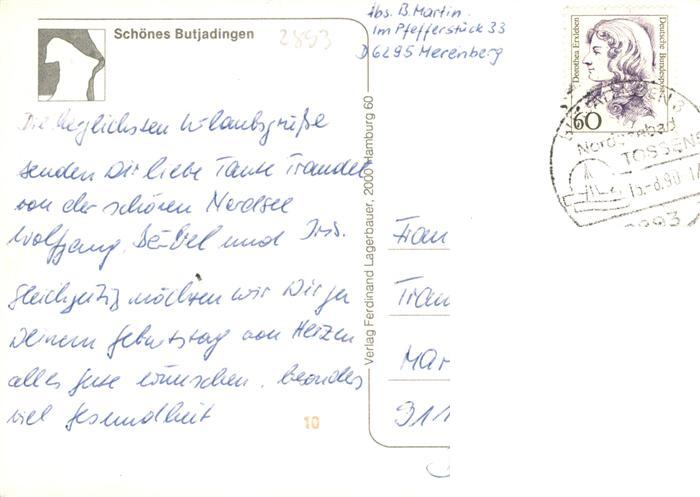 Schönes Butjadingen
2893
Abs. B. Martin
Im Pfefferstück 33
D 6295 Merenberg
Dorothea Erxleben
Deutsche Bundespost
60
Nordseebad
TOSSENS
15.-8.90
2893
Die herzlichsten Urlaubsgrüße
senden Dir liebe Tante Traudel
von der schönen Nordsee
Wolfgang, Bärbel und Iris.
Gleichzeitig möchten wir Dir zu
Deinem Geburtstag von Herzen
alles Gute wünschen, besonders
viel Gesundheit
10
Verlag Ferdinand Lagerbauer, 2000 Hamburg 60
Frau
Trau
Mar
911